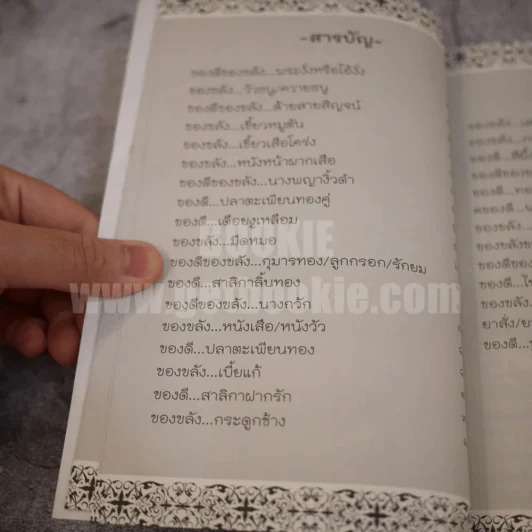 -สารบัญ-
ของดีของขลัง...มะระงั่งหรือไอ้งั่ง
ของขลัง...วัวธนู/ควายธนู
ของดีของขลัง...ด้ายสายสิญจน์
ของขลัง...เขี้ยวหมูตัน
ของขลัง...เขี้ยวเสือโคร่ง
ของขลัง...หนังหน้าผากเสือ
ของดีของขลัง...นางพญางิ้วดำ
ของดี...ปลาตะเพียนทองคู่
ของดี...เดือยงูเหลือม
ของขลัง...มีดหมอ
ของดีของขลัง...กุมารทอง/ลูกกรอก/รักยม
ของดี...สาลิกาลิ้นทอง
ของดีของขลัง...นางกวัก
ของขลัง...หนังเสือ/หนังวัว
ของดี...ปลาตะเพียนทอง
ของขลัง...เบี้ยแก้
ของดี...สาลิกาฝากรัก
ของขลัง...กระดูกช้าง
ของขลัง
ของขลัง
ของดี
ของดีของ
ของดี
ของดี
ของขลัง
ของขลัง
ของดีของ
ของดี
ของขลัง
ยาสั่ง
ของดี